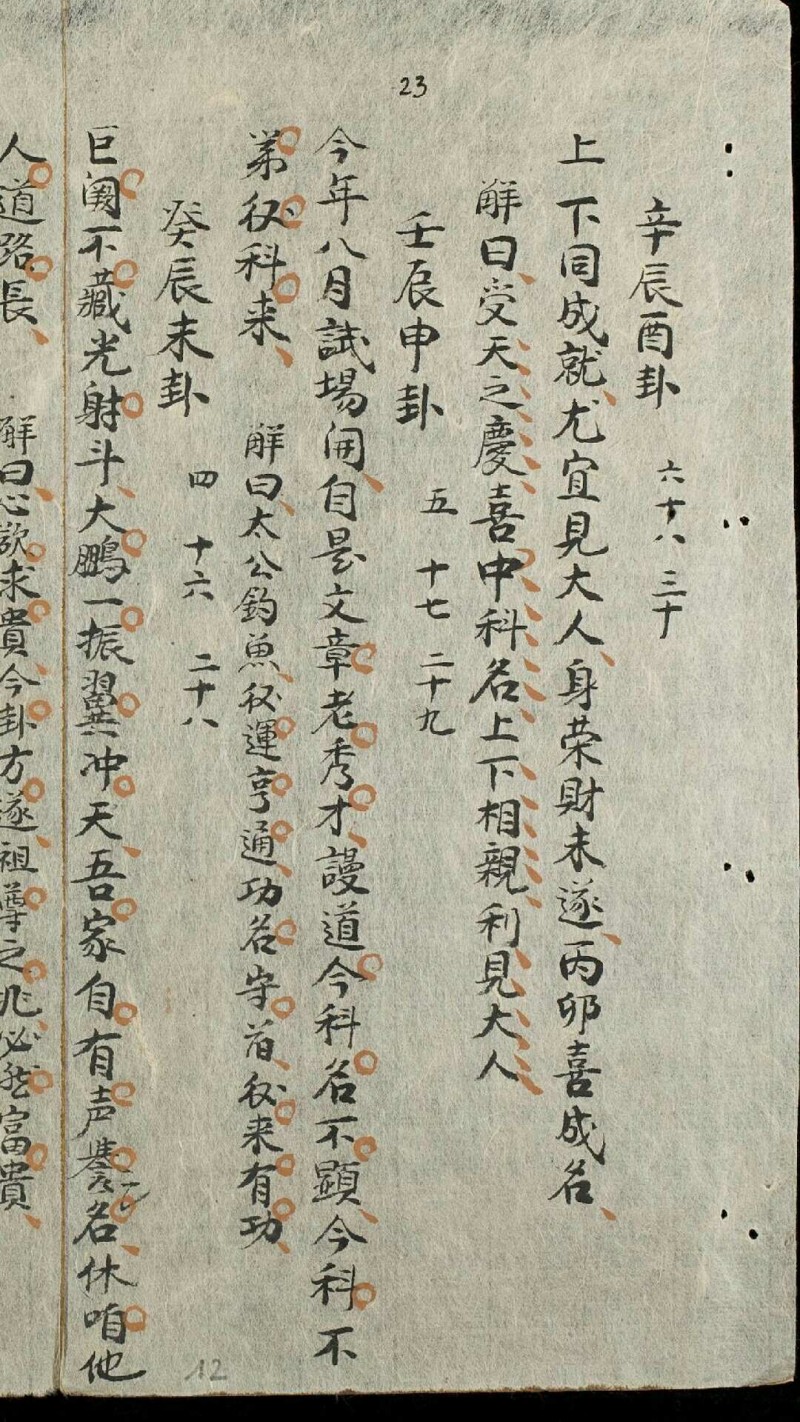 23
辛辰酉卦 六 十八 三十
上下同成就、尤宜見大人、身荣財未遂、丙卯喜成名、
解曰、受天之慶喜中科名上下相親利見大人
壬辰申卦 五 十七 二十九
今年八月試場開、自是文章老秀才、謾道今科名不顯、今科不
第後科来、 解曰、太公釣魚、後運亨通、功名守旧、後来有功、
癸辰未卦 四 十六 二十八
巨闕不藏光射斗、大鵬一振翼冲天、吾家自有声誉名、休咱他
人道路長、 解曰、心欲求貴、今卦方遂、祖尊之兆、必然富貴、
12